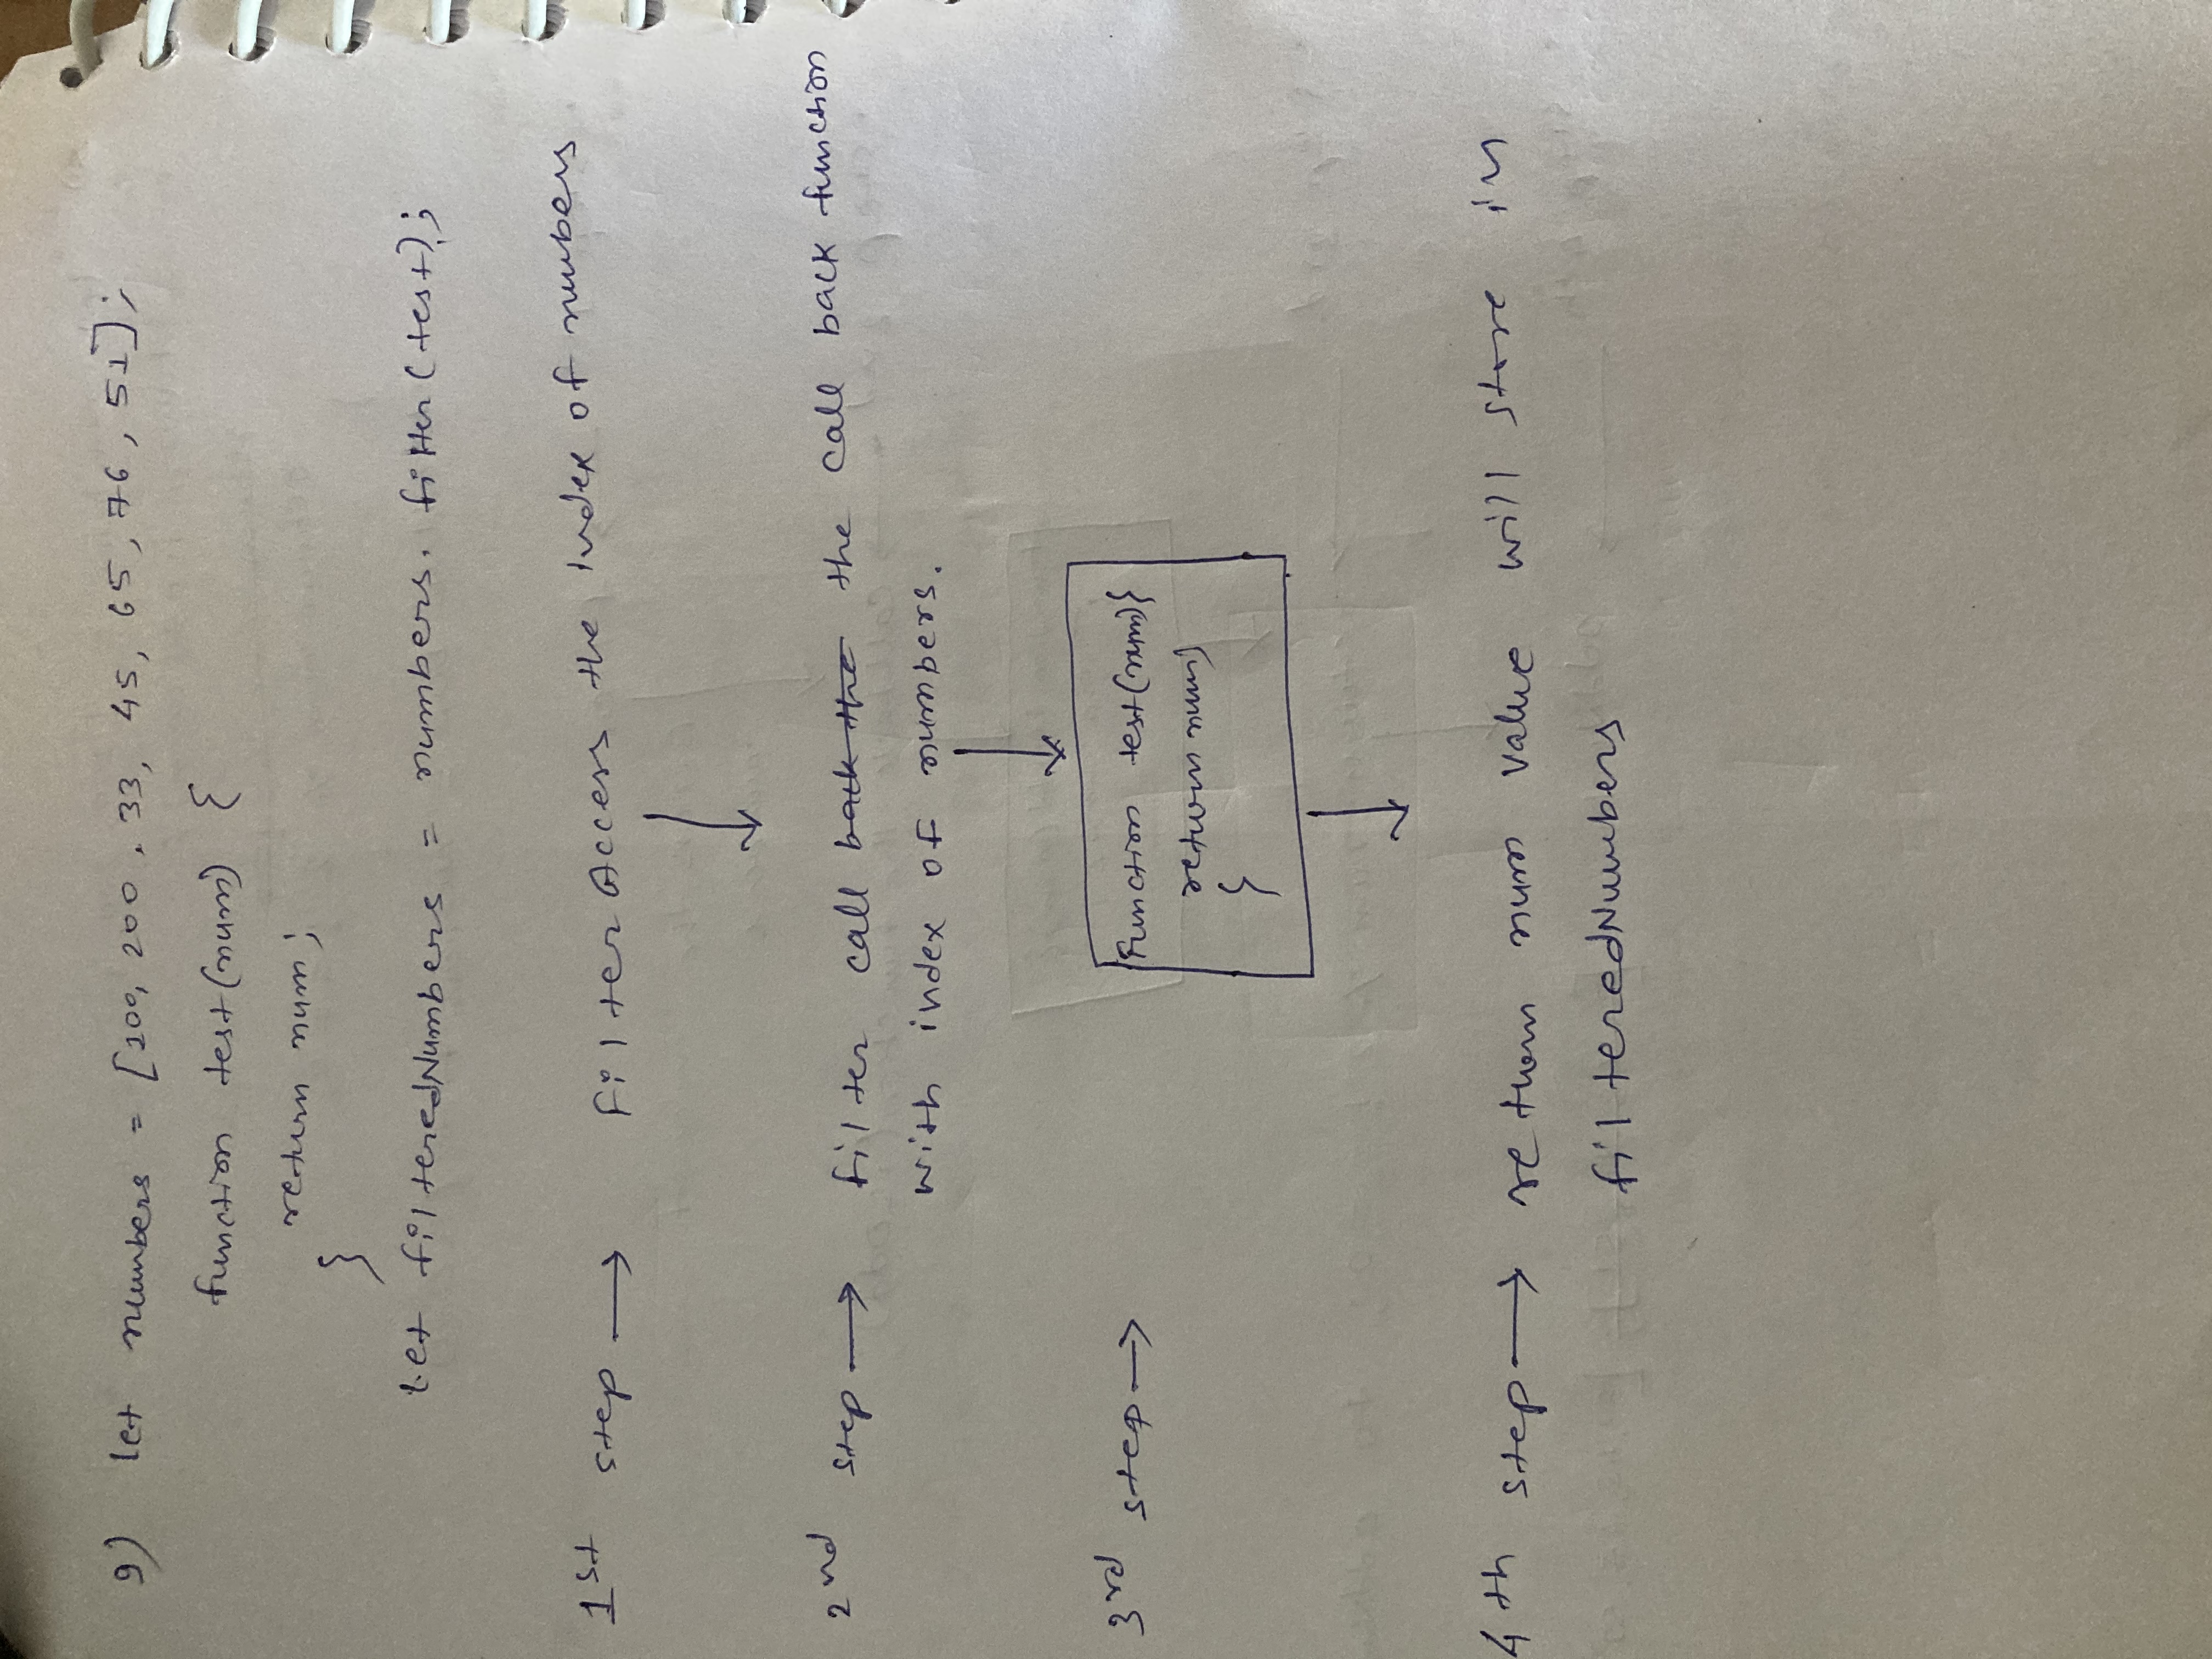 9) let numbers = [100, 200, 33, 45, 65, 76, 51];
function test(num) {
return num;
}
let filteredNumbers = numbers. filter(test);
1st step → filter Access the index of numbers
2nd step → filter call back the the call back function
with index of numbers.
3rd step →
function test(num){
return num;
}
4th step → return num value will store in
filteredNumbers